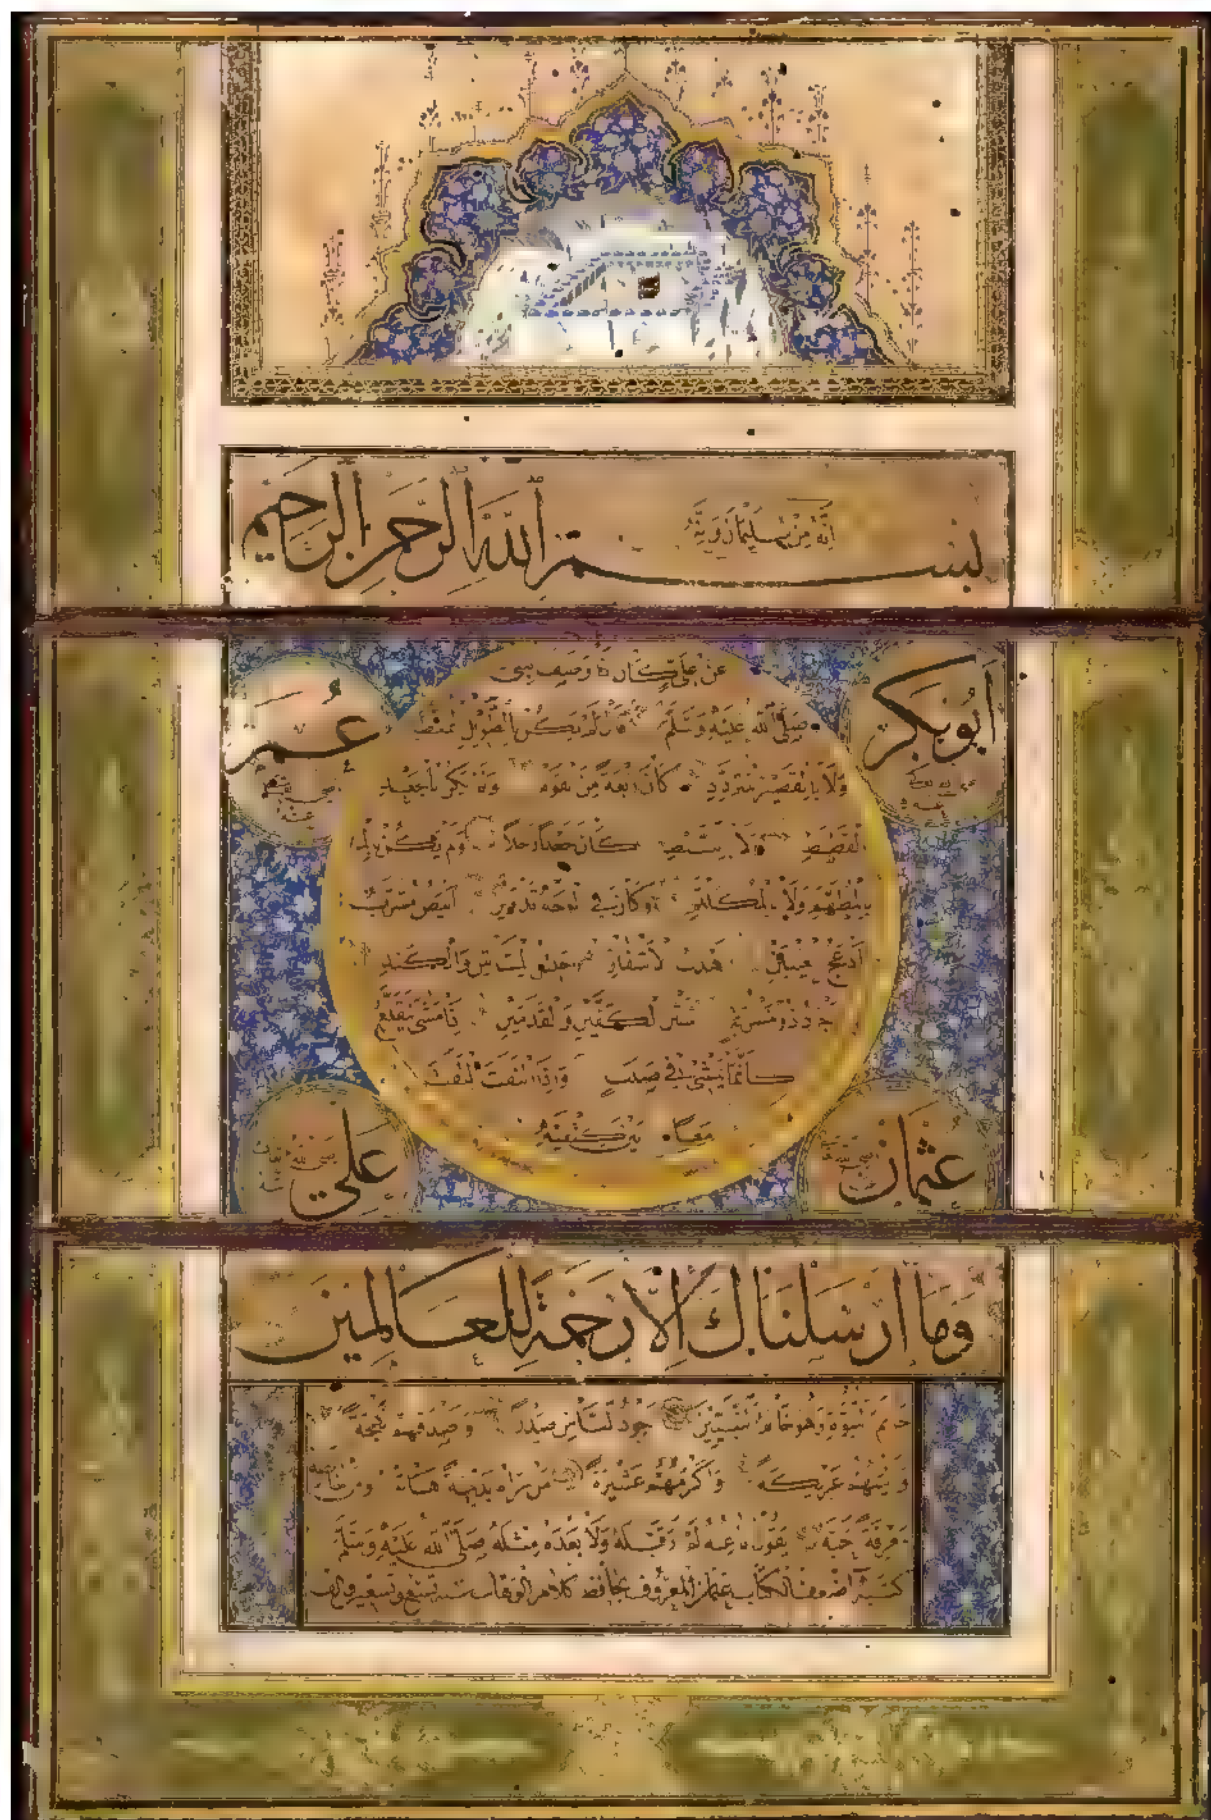 انه من سليمان وانه
بسم الله الرحمن الرحيم
عن علي كان اذا وصف النبي
ابو بكر
رضي الله عنه
عمر
رضي الله عنه
صلى الله عليه وسلم قال لم يكن بالطويل الممغط
ولا بالقصير المتردد كان ربعة من القوم ولم يكن بالجعد
القطط ولا بالسبط كان جعدا رجلا ولم يكن
بالمطهم ولا بالمكلثم وكان في الوجه تدوير ابيض مشرب
ادعج العينين اهدب الاشفار جليل المشاش والكتد
اجرد ذو مسربة شثن الكفين والقدمين اذا مشى يتقلع
كانما يمشي في صبب واذا التفت التفت
معا بين كتفيه
عثمان
رضي الله عنه
علي
رضي الله عنه
وما ارسلناك الا رحمة للعالمين
خاتم النبوة وهو خاتم النبيين اجود الناس صدرا واصدقهم لهجة
والينهم عريكة واكرمهم عشيرة من رآه بديهة هابه ومن خالطه
معرفة احبه يقول ناعته لم ار قبله ولا بعده مثله صلى الله عليه وسلم
كتبه اضعف الكتاب عثمان المعروف بحافظ كلام الوهاب سنة تسع وتسعين والف